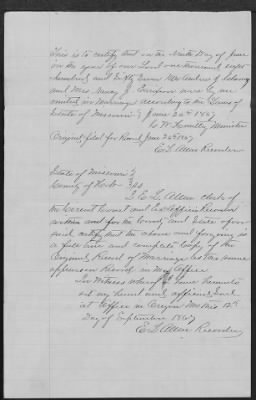 This is to certify that on the Ninth Day of June
in the year of our Lord one thousand eight
hundred and Sixty Seven Mr Andrew J
and Mrs Nancy J. were by me
united in Marriage according to the Laws of
State of Missouri June 24th 1867
C. W. Minister
Original filed for Record June 26th 1867
E. L. Allen Recorder
State of Missouri
County of Holt SS
I E. L. Allen clerk of
the Circuit Court and Ex officio Recorder
within and for the County and State afore
said certify that the above and foregoing is
a full true and complete Copy of the
Original Record of Marriage as the same
appears on Record in my office
In Witness whereof I have hereunto
set my hand and affixed Seal
at office in Oregon Mo this 12th
Day of September 1867
E. L. Allen Recorder